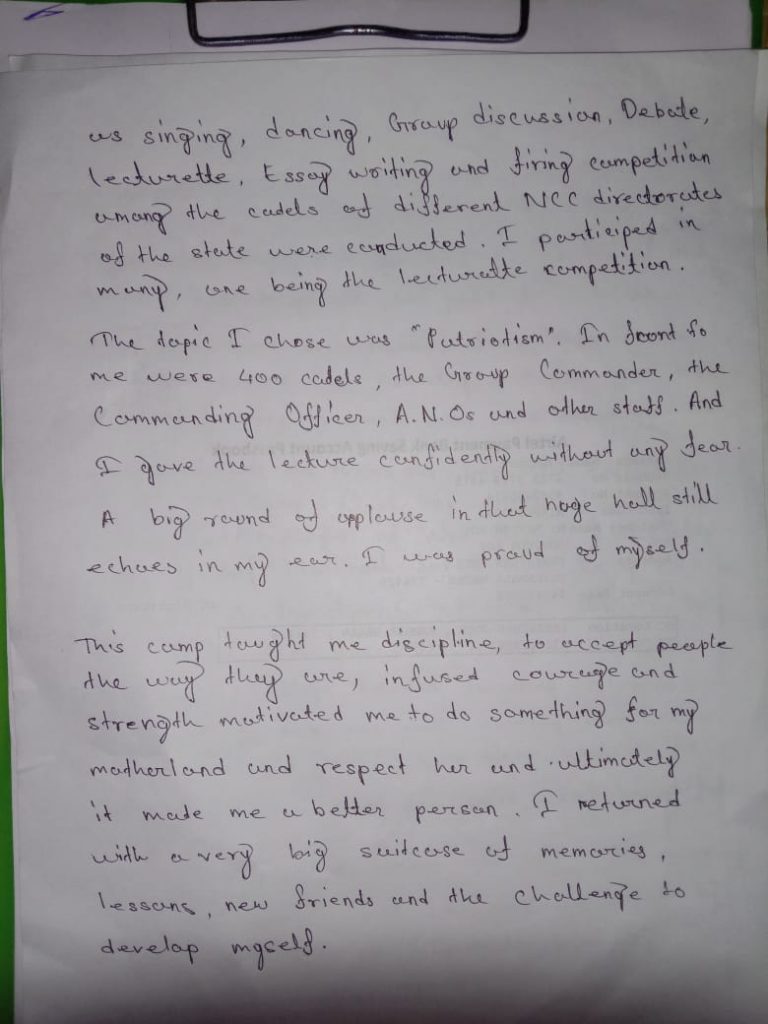 as singing, dancing, Group discussion, Debate,
lecturette, Essay writing and firing competition
among the cadets of different NCC directorates
of the state were conducted. I participed in
many, one being the lecturatte competition.
The topic I chose was "Patriotism". In front fo
me were 400 cadets, the Group Commander, the
Commanding Officer, A.N.Os and other staff. And
I gave the lecture confidently without any fear.
A big round of applause in that hage hall still
echoes in my ear. I was proud of myself.
This camp taught me discipline, to accept people
the way they are, infused courage and
strength motivated me to do something for my
motherland and respect her and ultimately
it made me a better person. I returned
with a very big suitcase of memories,
lessons, new friends and the challenge to
develop myself.